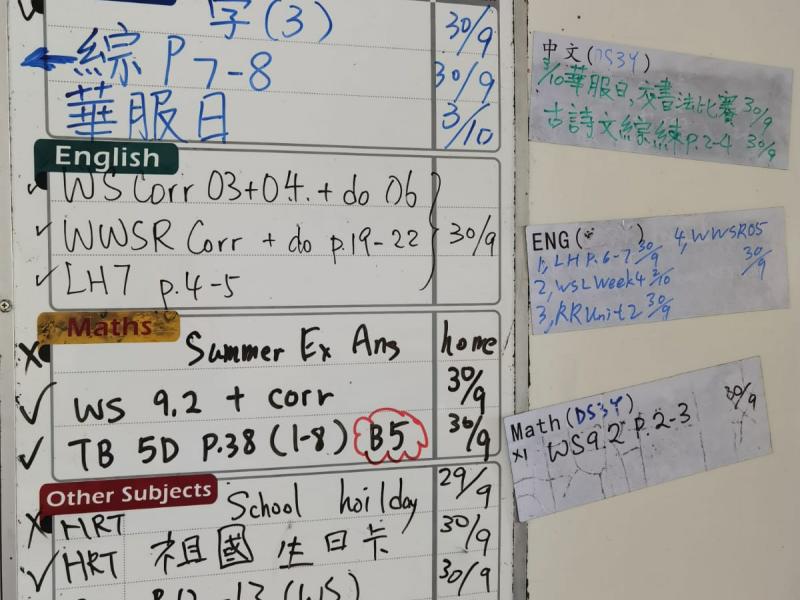 字(3) 30/9
綜 P7-8 30/9
華服日 3/10
English
WS Corr 03+04. + do 06
WWSR Corr + do p.19-22 30/9
LH7 p.4-5
Maths
Summer Ex Ans home
WS 9.2 + corr 30/9
TB 5D P.38 (1-8) B5 30/9
Other Subjects
School hoilday 29/9
HRT 30/9
HRT 祖國生日卡 30/9
(WS)
中文(DS3Y)
3/10華服日,交書法比賽 30/9
古詩文綜練p.2-4 30/9
ENG( )
1, LH P.6-7 30/9 4, WWSR05 30/9
2, WSL Week4 3/10
3, RR Unit 2 30/9
Math(DS3Y) 30/9
X1 WS9.2 P.2-3